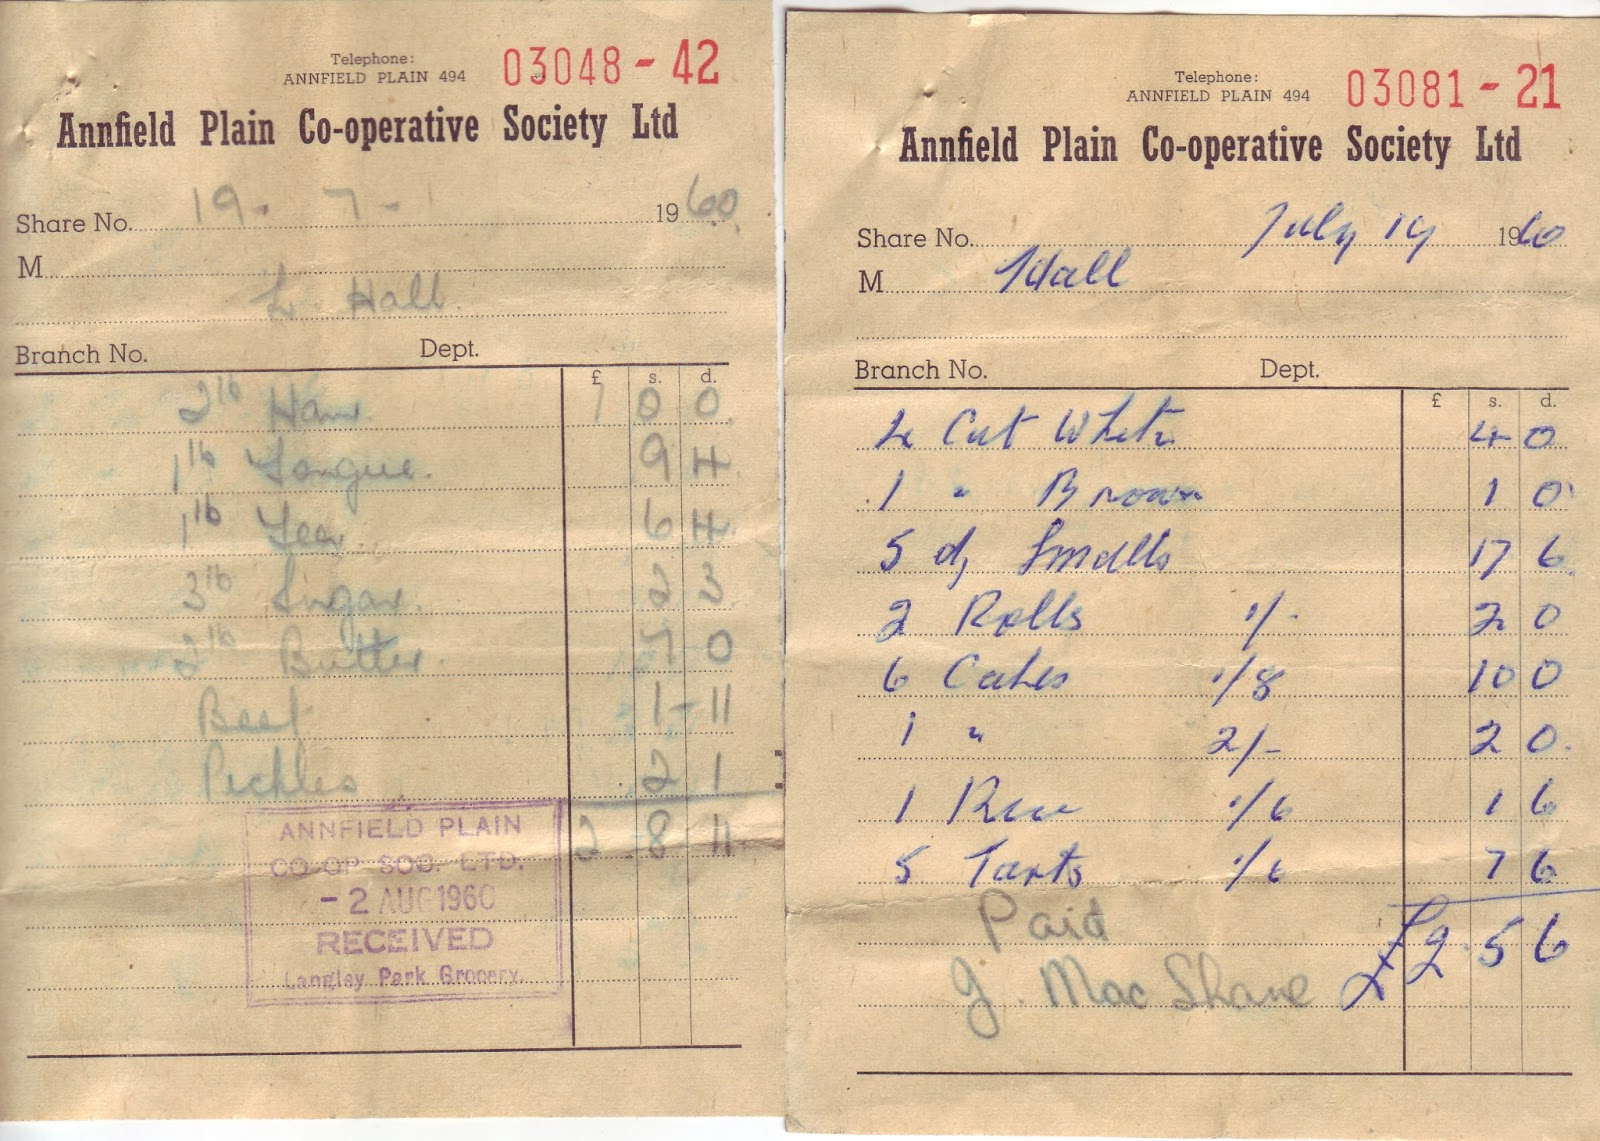 Telephone:
ANNFIELD PLAIN 494
03048 - 42
Annfield Plain Co-operative Society Ltd
Share No. 19 - 7 - 1960
M
L Hall.
Branch No. Dept.
£ s. d.
2lb Ham. 1 0 0.
1lb Tongue. 9 4.
1lb Tea. 6 4.
3lb Sugar. 2 3
2lb Butter. 7 0
Beef 1 - 11
Pickles 2 1
2 8 11
ANNFIELD PLAIN
CO-OP SOC. LTD.
- 2 AUG 1960
RECEIVED
Langley Park Grocery.
Telephone:
ANNFIELD PLAIN 494
03081 - 21
Annfield Plain Co-operative Society Ltd
Share No. July 19 1960
M Hall
Branch No. Dept.
£ s. d.
4 Cut White 4 0
1 " Brown 1 0
5 dz Smalls 17 6
2 Rolls 1/- 2 0
6 Cakes 1/8 10 0
1 " 2/- 2 0.
1 1/6 1 6
5 Tarts 1/6 7 6
Paid £2. 5 6
J. MacShane